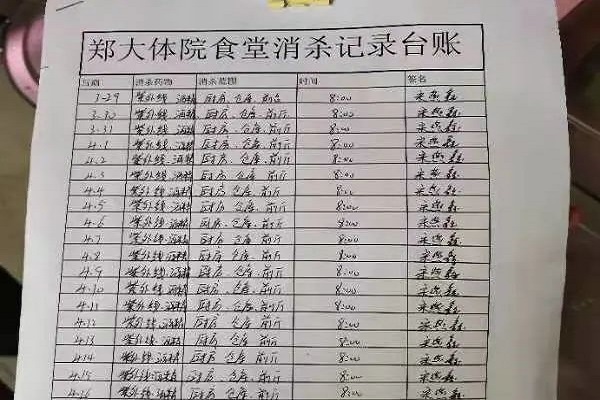 郑大体院食堂消杀记录台账
日期 消杀药物 消杀范围 时间 签名
3-29 紫外线 酒精 厨房、仓库、前台 8:00
3-30 紫外线 酒精 厨房、仓库、前厅 8:00
3-31 紫外线 酒精 厨房、仓库、前厅 8:00
4.1 紫外线 酒精 厨房、仓库、前厅 8:00
4.2 紫外线 酒精 厨房、仓库、前厅 8:00
4.3 紫外线 酒精 厨房、仓库、前厅 8:00
4.4 紫外线 酒精 厨房、仓库、前厅 8:00
4.5 紫外线 酒精 厨房、仓库、前厅 8:00
4.6 紫外线 酒精 厨房、仓库、前厅 8:00
4.7 紫外线 酒精 厨房、仓库、前厅 8:00
4.8 紫外线 酒精 厨房、仓库、前厅 8:00
4.9 紫外线 酒精 厨房、仓库、前厅 8:00
4.10 紫外线 酒精 厨房、仓库、前厅 8:00
4.11 紫外线 酒精 厨房、仓库、前厅 8:00
4.12 紫外线 酒精 厨房、仓库、前厅 8:00
4.13 紫外线 酒精 厨房、仓库、前厅 8:00
4.14 紫外线 酒精 厨房、仓库、前厅 8:00
4.15 紫外线 酒精 厨房、仓库、前厅 8:00
4.16 紫外线 酒精 厨房、仓库、前厅 8:00